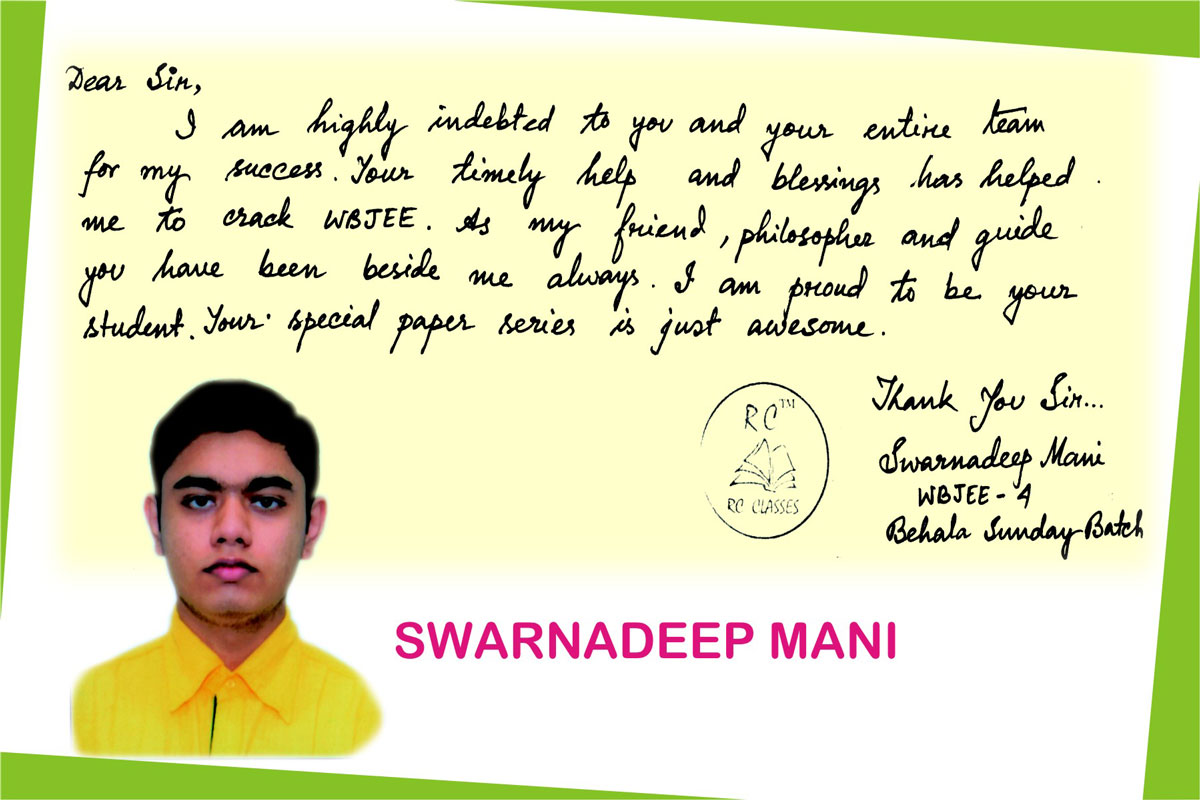 Dear Sir,
I am highly indebted to you and your entire team
for my success. Your timely help and blessings has helped
me to crack WBJEE. As my friend, philosopher and guide
you have been beside me always. I am proud to be your
student. Your special paper series is just awesome.
Thank You Sir...
Swarnadeep Mani
WBJEE - 4
Behala Sunday Batch
RC™
RC CLASSES
SWARNADEEP MANI